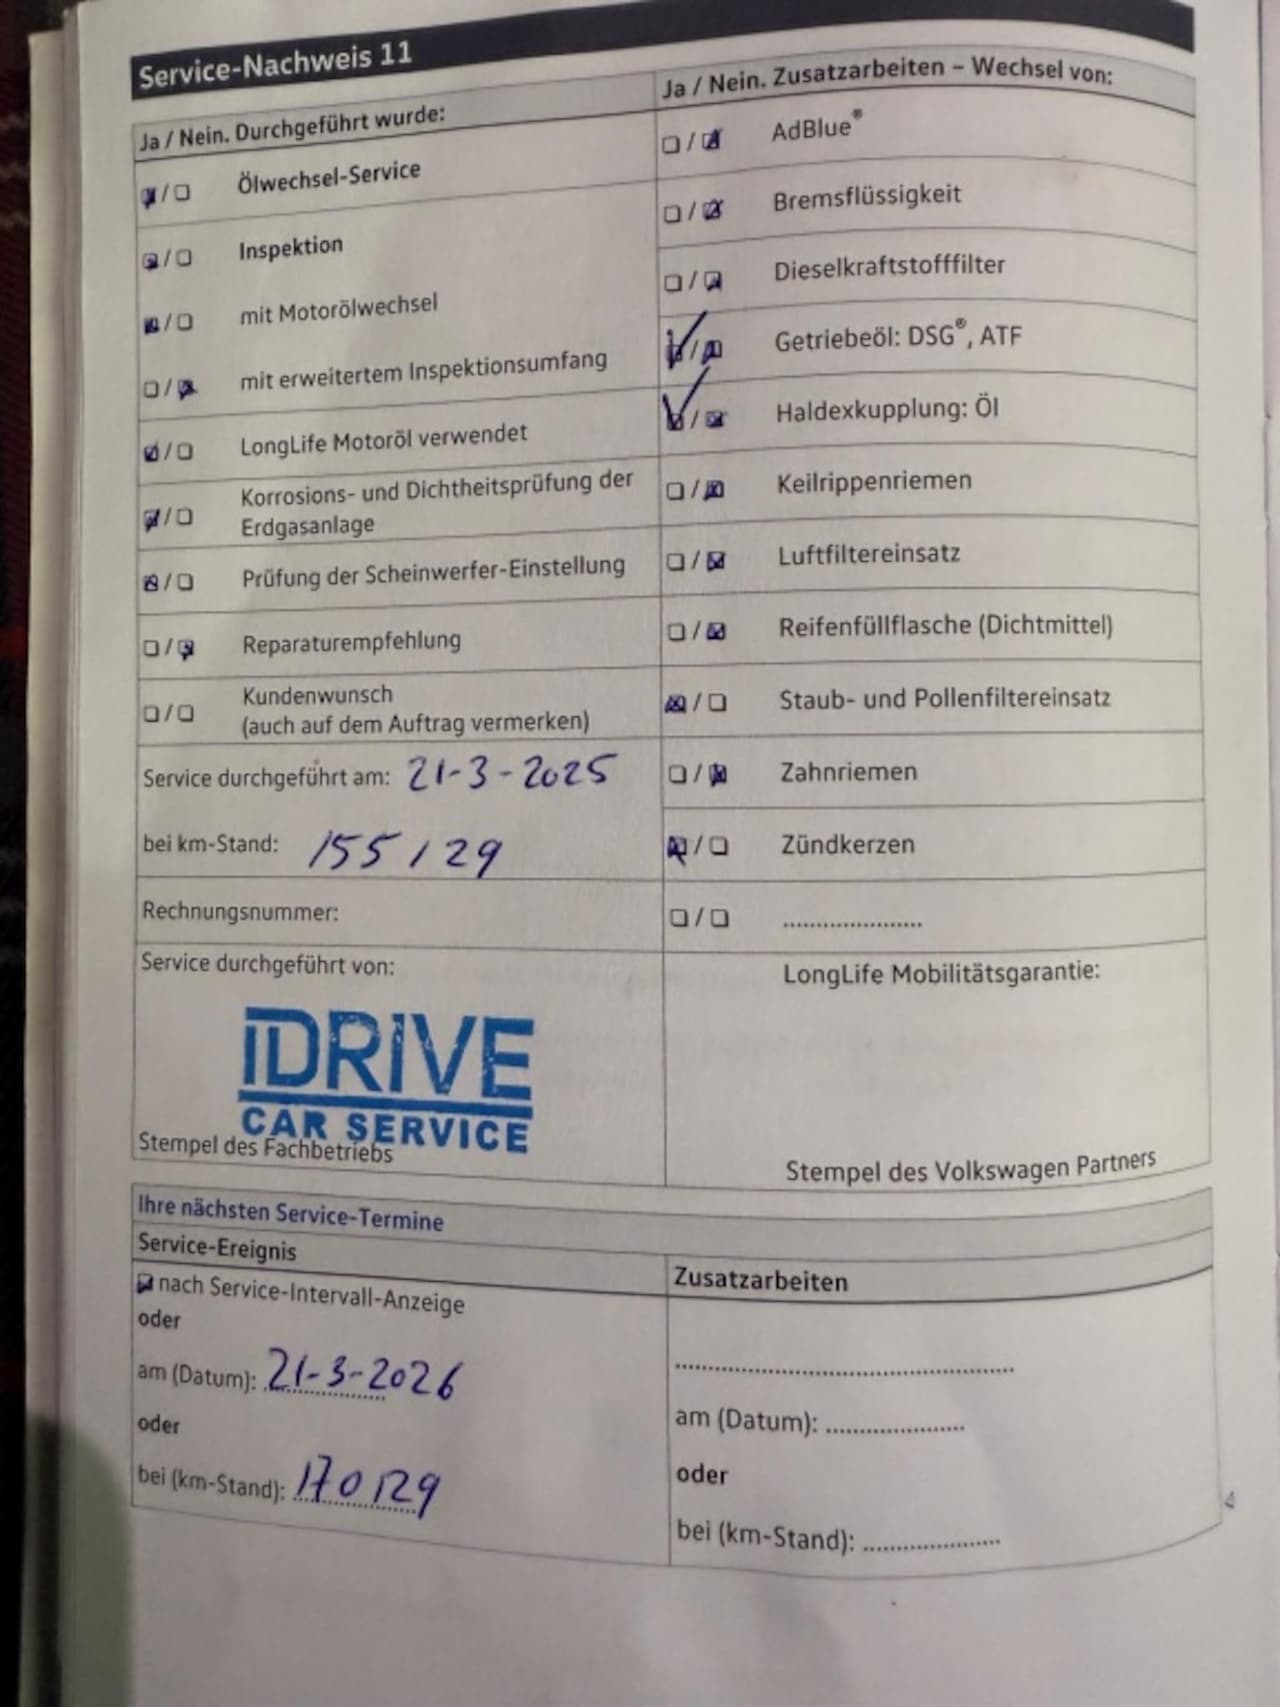 Service-Nachweis 11
Ja / Nein. Durchgeführt wurde:
Ölwechsel-Service
Inspektion
mit Motorölwechsel
mit erweitertem Inspektionsumfang
LongLife Motoröl verwendet
Korrosions- und Dichtheitsprüfung der
Erdgasanlage
Prüfung der Scheinwerfer-Einstellung
Reparaturempfehlung
Kundenwunsch
(auch auf dem Auftrag vermerken)
Service durchgeführt am: 21-3-2025
bei km-Stand: 155129
Rechnungsnummer:
Service durchgeführt von:
IDRIVE
CAR SERVICE
Stempel des Fachbetriebs
Ja / Nein. Zusatzarbeiten – Wechsel von:
AdBlue®
Bremsflüssigkeit
Dieselkraftstofffilter
Getriebeöl: DSG®, ATF
Haldexkupplung: Öl
Keilrippenriemen
Luftfiltereinsatz
Reifenfüllflasche (Dichtmittel)
Staub- und Pollenfiltereinsatz
Zahnriemen
Zündkerzen
LongLife Mobilitätsgarantie:
Stempel des Volkswagen Partners
Ihre nächsten Service-Termine
Service-Ereignis
nach Service-Intervall-Anzeige
oder
am (Datum): 21-3-2026
oder
bei (km-Stand): 170129
Zusatzarbeiten
am (Datum):
oder
bei (km-Stand):